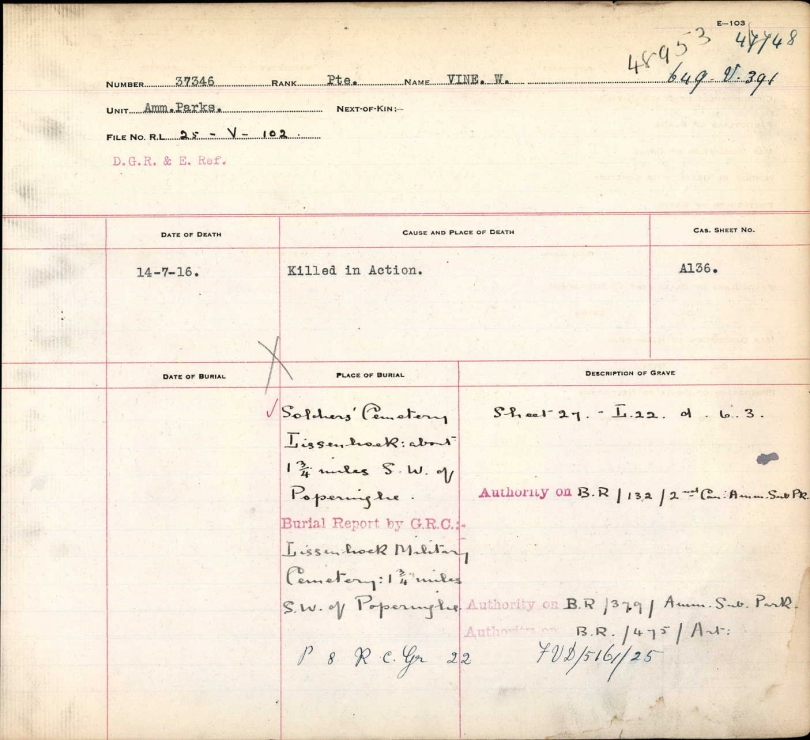 E-103
48953 47748
NUMBER 37346 RANK Pte. NAME VINE. W. 649-V-391
UNIT Amm.Parks. NEXT-OF-KIN:-
FILE NO. R.L. 25 - V - 102.
D.G.R. & E. Ref.
DATE OF DEATH CAUSE AND PLACE OF DEATH CAS. SHEET NO.
14-7-16. Killed in Action. A136.
DATE OF BURIAL PLACE OF BURIAL DESCRIPTION OF GRAVE
Soldiers' Cemetery Sheet 27. - L.22. d. 6.3.
Lissenhoek: about
1 3/4 miles S.W. of
Poperinghe. Authority on B.R/132/2nd Can: Amm. Sub Pk.
Burial Report by G.R.C.:-
Lissenhoek Military
Cemetery: 1 3/4 miles
S.W. of Poperinghe. Authority on B.R/379/ Amm. Sub. Park.
Authority on B.R./475/Art:
P 8 R C. Gr 22 FVD/5161/25